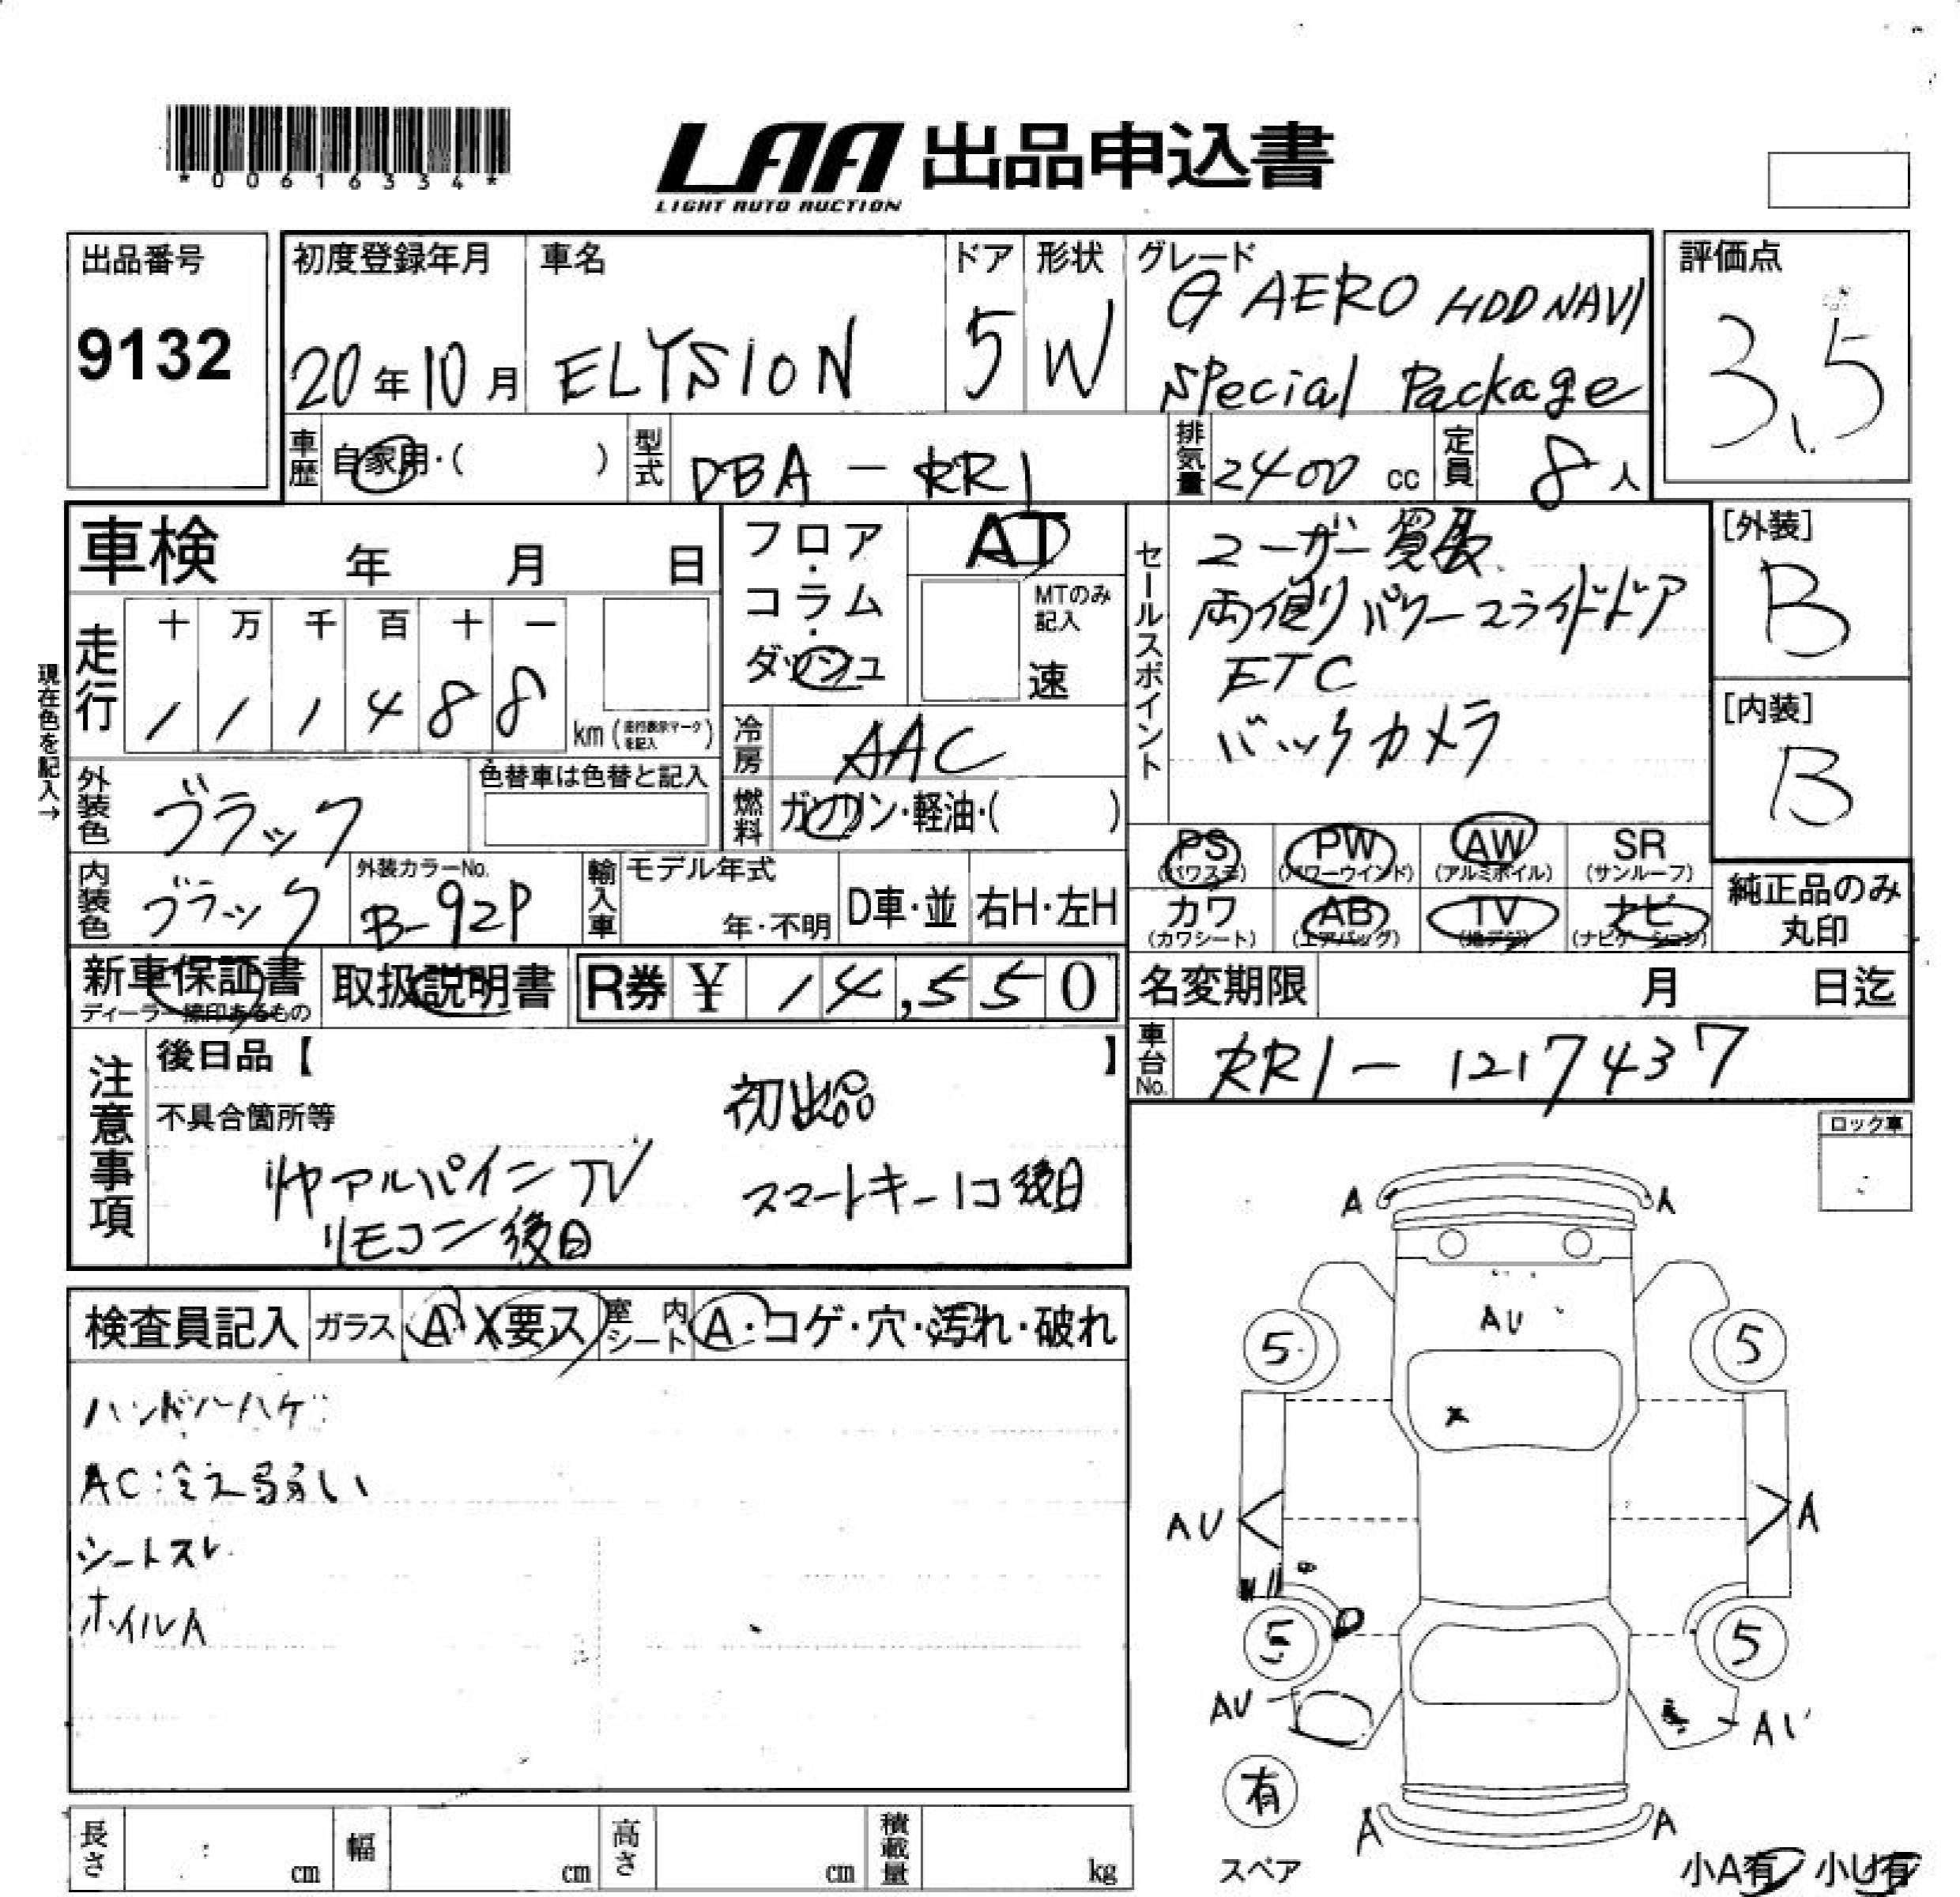 *00616334*
LAA 出品申込書
LIGHT AUTO AUCTION
出品番号
9132
初度登録年月
20年10月
車名
ELYSION
ドア
5
形状
W
グレード
G AERO HDD NAVI
Special Package
評価点
3.5
車歴
自家用・( )
型式
DBA-RR1
排気量
2400 cc
定員
8人
車検 年 月 日
フロア・コラム・ダッシュ
AT
MTのみ記入
速
セールスポイント
ユーザー買取
両側パワースライドドア
ETC
バックカメラ
[外装]
B
[内装]
B
現在色を記入→
走行
十 万 千 百 十 一
1 1 1 4 8 8
km (走行表示マークを記入)
冷房
AAC
外装色
ブラック
色替車は色替と記入
燃料
ガソリン・軽油・( )
PS (パワステ)
PW (パワーウインド)
AW (アルミホイル)
SR (サンルーフ)
カワ (カワシート)
AB (エアバッグ)
TV (地デジ)
ナビ (ナビゲーション)
純正品のみ丸印
内装色
ブラック
外装カラーNo.
B-92P
輸入車
モデル年式
年・不明
D車・並
右H・左H
新車保証書
ディーラー捺印あるもの
取扱説明書
R券 ¥ 14,550
名変期限 月 日迄
車台No.
RR1-1217437
注意事項
後日品【 】
不具合箇所等
初出品
リヤアルパインTV
リモコン後日
スマートキー1コ後日
ロック車
検査員記入
ガラス A X要ス
室内シート A・コゲ・穴・汚れ・破れ
ハンドルハゲ
AC:冷え弱い
シートスレ
ホイルA
A A
AU
5 5
X
AU A
5 5
AU
有
スペア
A A
小A有 小U有
長さ cm
幅 cm
高さ cm
積載量 kg